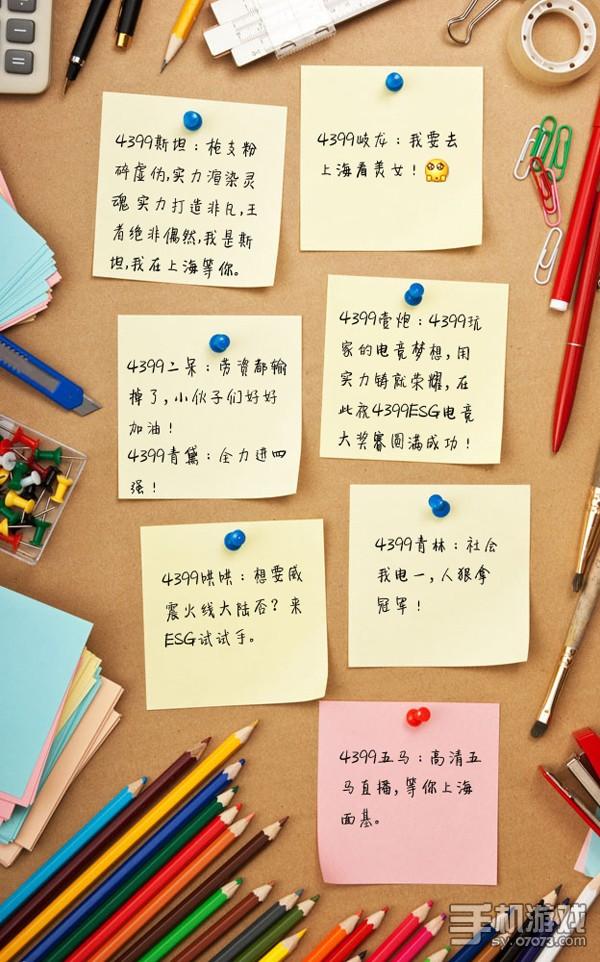 4399斯坦：枪支粉
碎虚伪,实力渲染灵
魂 实力打造非凡,王
者绝非偶然,我是斯
坦,我在上海等你。
4399岐龙：我要去
上海看美女！
4399壹炮：4399玩
家的电竞梦想，用
实力铸就荣耀，在
此祝4399ESG电竞
大奖赛圆满成功！
4399二呆：劳资都输
掉了，小伙子们好好
加油！
4399青黛：全力进四
强！
4399青林：社会
我电一，人狠拿
冠军！
4399哄哄：想要威
震火线大陆否？来
ESG试试手。
4399五马：高清五
马直播，等你上海
面基。
手机游戏
sy.07073.com